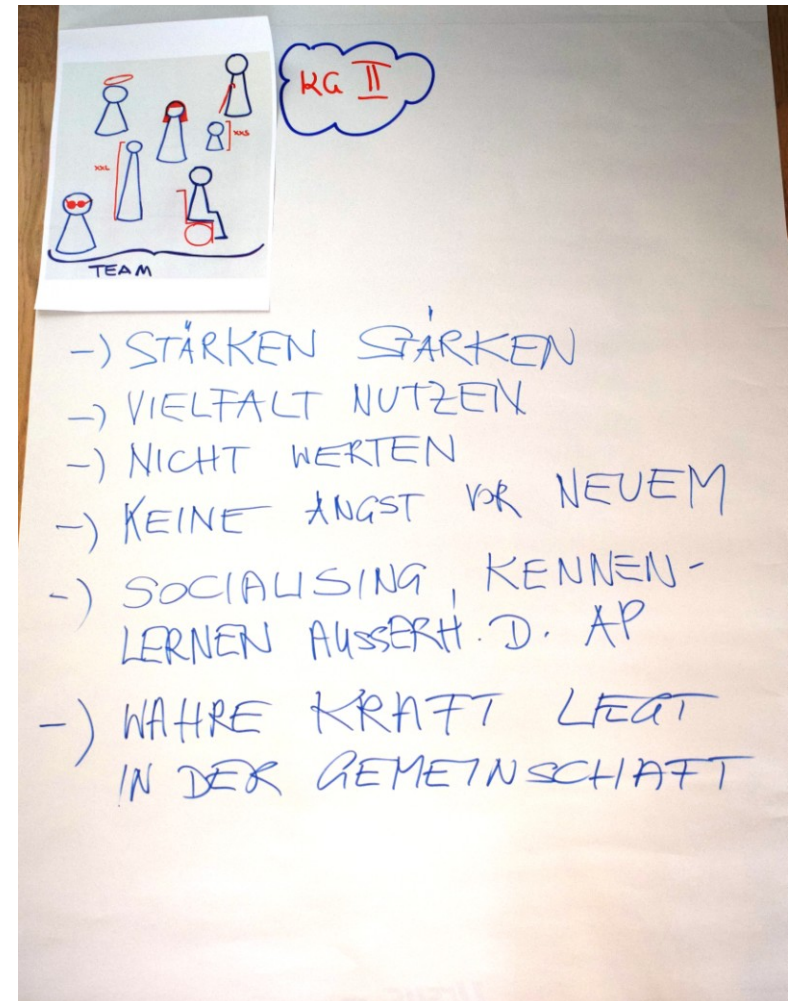 KG II
XXS
XXL
TEAM
-) STÄRKEN STÄRKEN
-) VIELFALT NUTZEN
-) NICHT WERTEN
-) KEINE ANGST VOR NEUEM
-) SOCIALISING, KENNEN-
LERNEN AUSSERH. D. AP
-) WAHRE KRAFT LIEGT
IN DER GEMEINSCHAFT